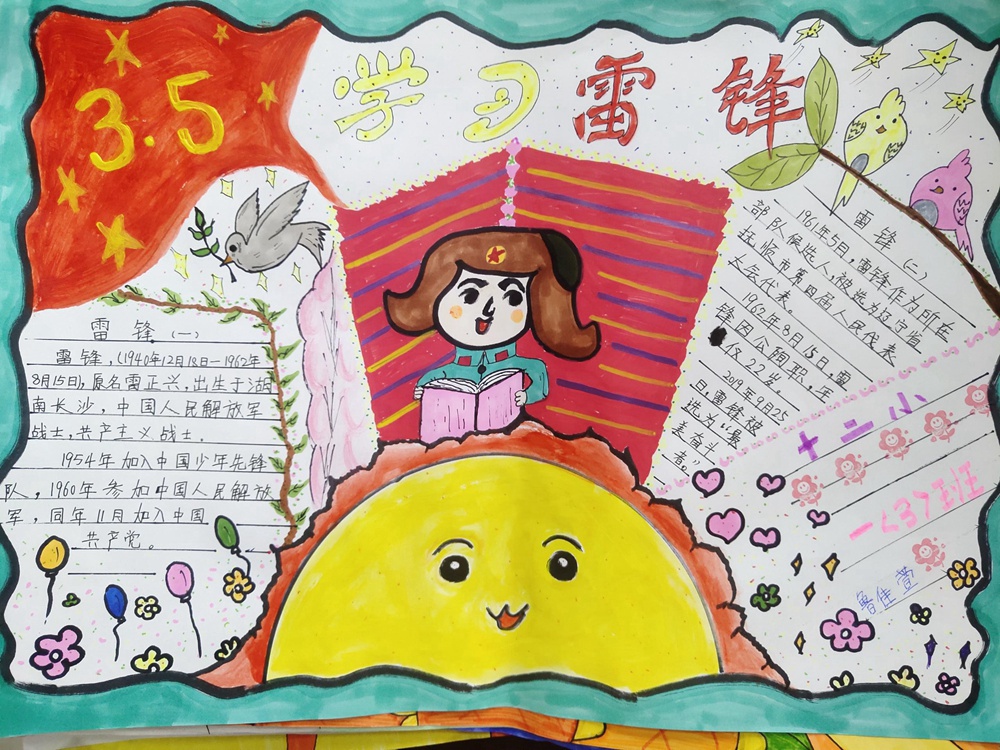 3.5
学习雷锋
雷锋(一)
雷锋,(1940年12月18日—1962年
8月15日),原名雷正兴,出生于湖
南长沙,中国人民解放军
战士,共产主义战士.
1954年加入中国少年先锋
队,1960年参加中国人民解放
军,同年11月加入中国
共产党。
雷锋(二)
1961年5月,雷锋作为所在
部队候选人,被选为辽宁省
抚顺市第四届人民代表
大会代表。
1962年8月15日,雷
锋因公殉职,年
仅22岁
2019年9月25
日,雷锋被
选为“最
美奋斗
者。”
十二小
一(3)班
鲁佳萱